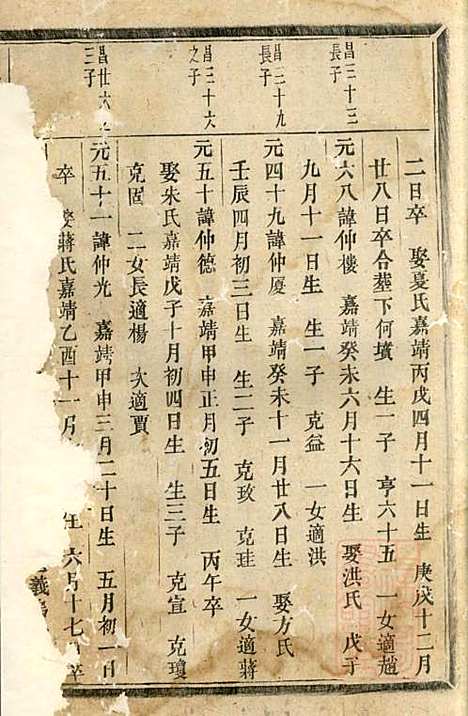 二日卒 娶夏氏嘉靖丙戌四月十一日生 庚戌十二月
廿八日卒合葬下何墳 生一子 亨六十五 一女適趙
昌二十三長子
元六八諱仲樓 嘉靖癸未六月十六日生 娶洪氏 戊子
九月十一日生 生一子 克益 一女適洪
昌二十九長子
元四十九諱仲厦 嘉靖癸未十一月廿八日生 娶方氏
壬辰四月初三日生 生二子 克玫 克珪 一女適蔣
昌三十六之子
元五十諱仲德 嘉靖甲申正月初五日生 丙午卒
娶朱氏嘉靖戊子十月初四日生 生三子 克宣 克瓊
克固 二女長適楊 次適賈
昌廿六 三子
元五十一諱仲光 嘉靖甲申三月二十日生 五月初一日
卒 娶蔣氏嘉靖乙酉十一月 生 六月十七 卒
義